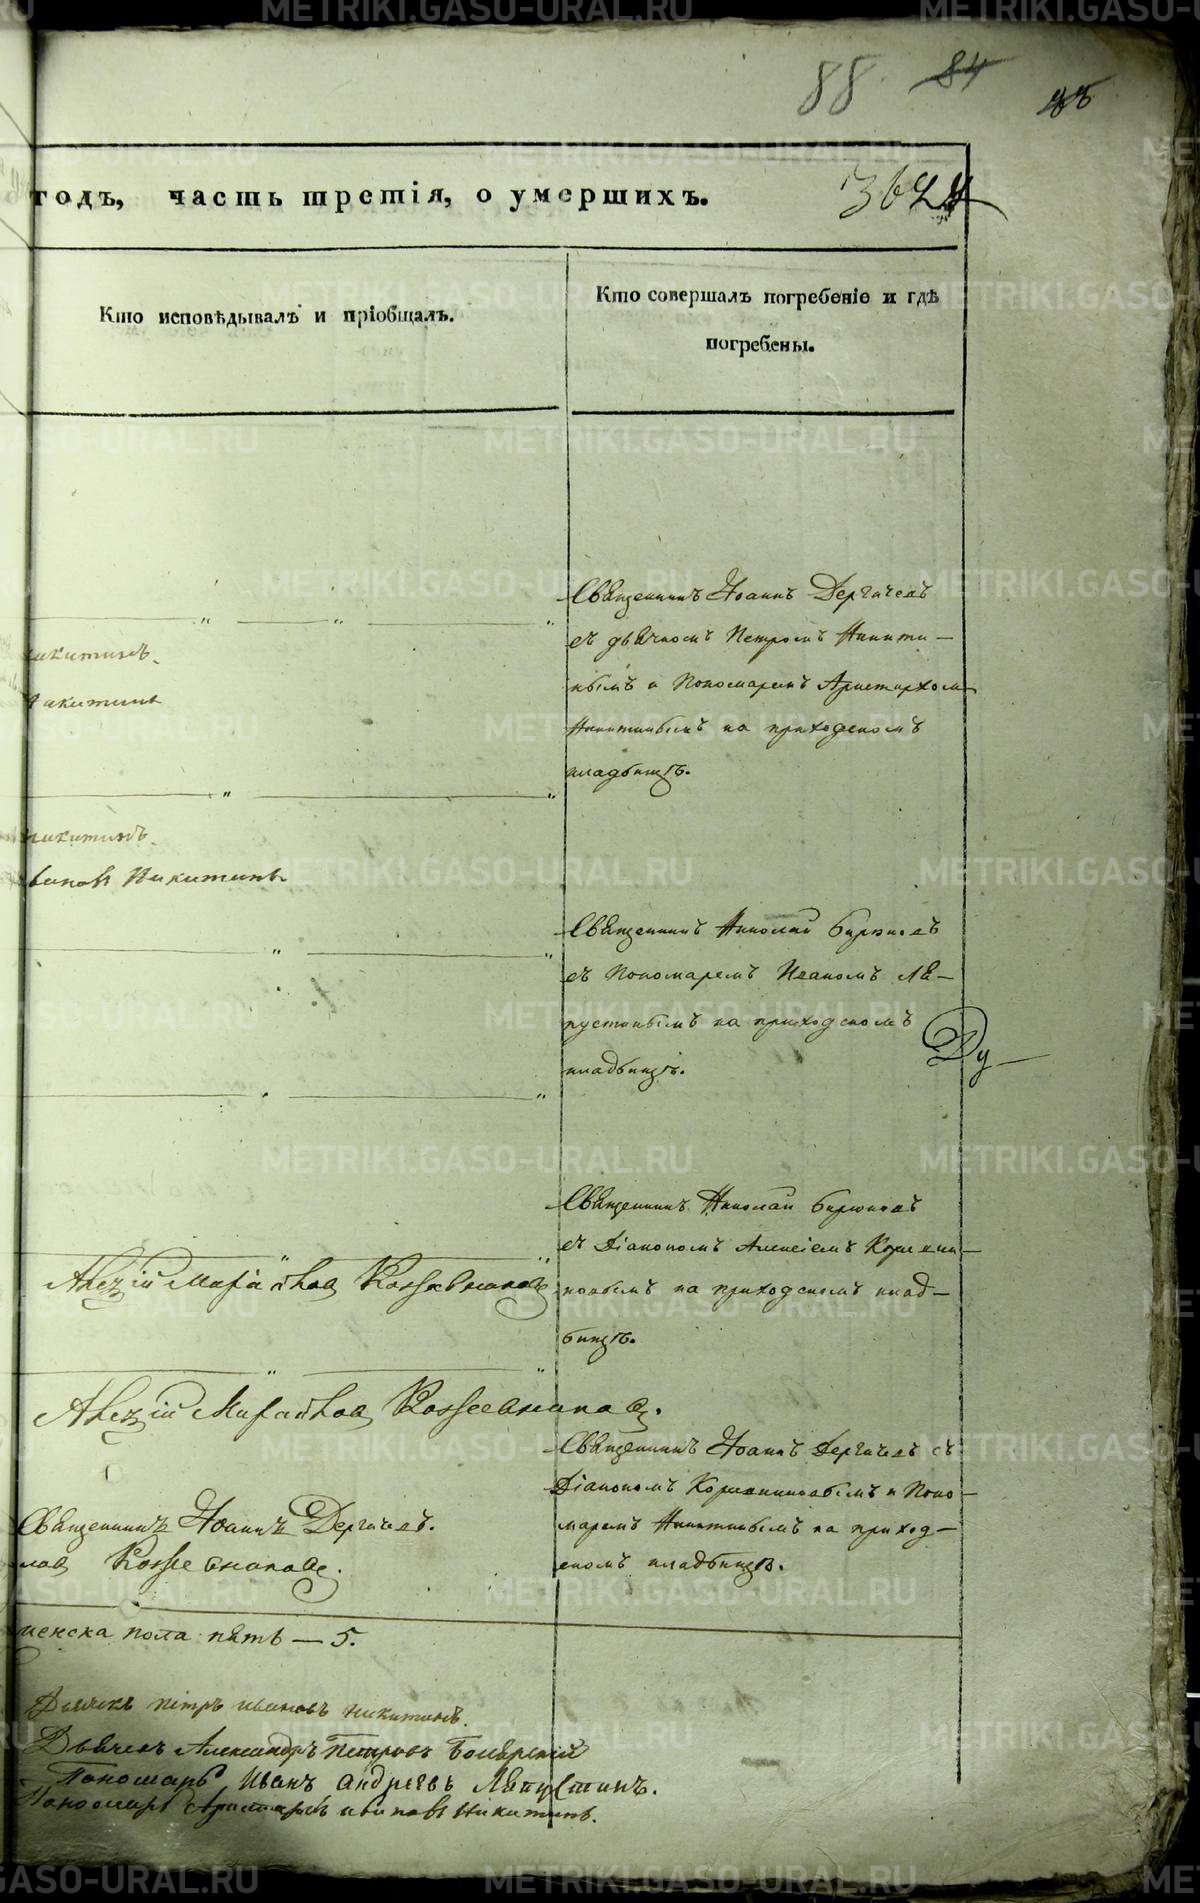 88 84
годъ, часть третія, о умершихъ.
Кто исповѣдывалъ и пріобщалъ.
Кто совершалъ погребеніе и гдѣ
погребены.
Священникъ Іоаннъ Дергачевъ
съ дьячкомъ Петромъ Никити—
нымъ и Пономаремъ Аристархомъ
Никитинымъ на приходскомъ
кладбищѣ.
икитинъ.
Никитинъ
никитинъ.
вановъ Никитинъ
Священникъ Николай Бирюковъ
съ Пономаремъ Иваномъ Ля—
пустинымъ на приходскомъ
кладбищѣ.
Священникъ Николай Бирюковъ
съ Діакономъ Алексіемъ
на приходскомъ клад—
бищѣ.
Алексій Кожевниковъ
Алексій Кожевниковъ.
Священникъ Іоаннъ Дергачевъ съ
Діакономъ и Поно—
маремъ Никитинымъ на приход—
скомъ кладбищѣ.
Священникъ Іоаннъ Дергачевъ.
Кожевниковъ.
женска пола пять — 5.
Дьячекъ Пётръ Ивановъ Никитинъ.
Дьячекъ Александръ Петровъ Боярскій
Пономарь Иванъ Андреевъ Ляпустинъ.
Пономарь Аристархъ Ивановъ Никитинъ.
METRIKI.GASO-URAL.RU